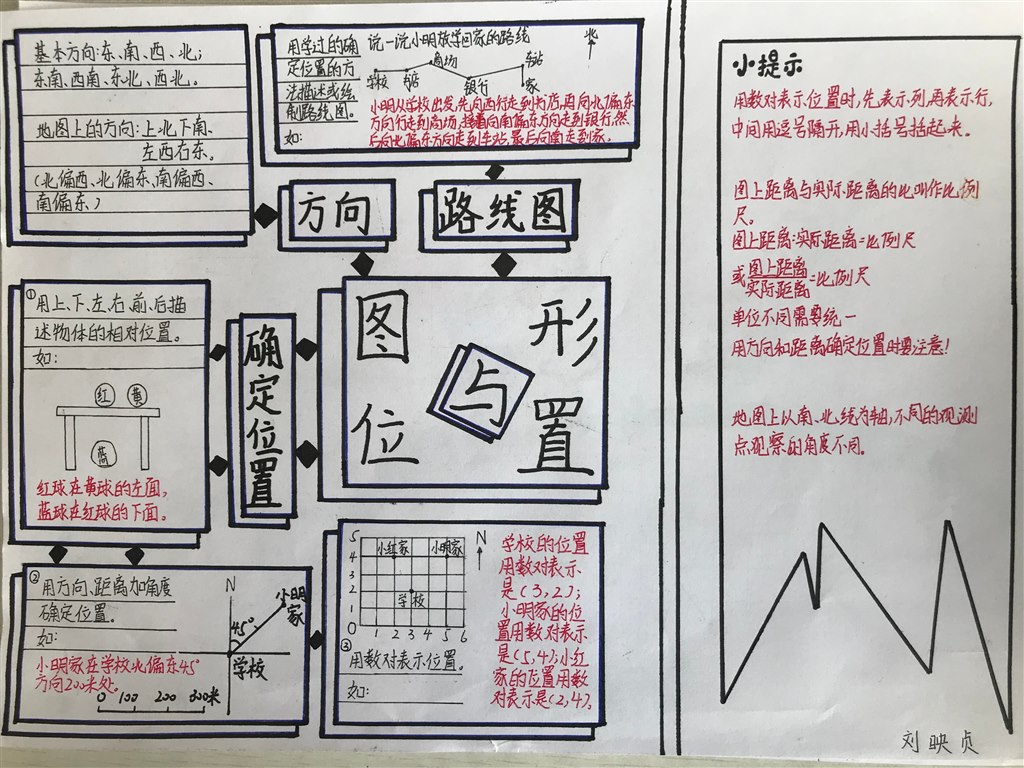 基本方向:东、南、西、北;
东南、西南、东北、西北。
地图上的方向:上北下南、
左西右东。
(北偏西、北偏东、南偏西、
南偏东、)
用学过的确
定位置的方
法描述或绘
制路线图。
如:
说一说小明放学回家的路线
北
学校
书店
商场
银行
车站
家
小明从学校出发,先向西行走到书店,再向北偏东
方向行走到商场,接着向南偏东方向走到银行,然
后向北偏东方向走到车站,最后向南走到家。
方向
路线图
图形
与
位置
确定位置
①用上、下、左、右、前、后描
述物体的相对位置。
如:
红
黄
蓝
红球在黄球的左面,
蓝球在红球的下面。
②用方向、距离加角度
确定位置。
如:
小明家在学校北偏东45°
方向200米处。
0 100 200 300米
N
小明
家
45°
学校
5
4
3
2
1
0
1 2 3 4 5 6
小红家
小明家
学校
N
③用数对表示位置。
如:
学校的位置
用数对表示
是(3,2);
小明家的位
置用数对表示
是(5,4);小红
家的位置用数
对表示是(2,4)。
小提示
用数对表示位置时,先表示列,再表示行,
中间用逗号隔开,用小括号括起来。
图上距离与实际距离的比叫作比例
尺。
图上距离:实际距离=比例尺
或图上距离/实际距离=比例尺
单位不同需要统一
用方向和距离确定位置时要注意!
地图上以南、北线为轴,不同的观测
点观察的角度不同。
刘映贞